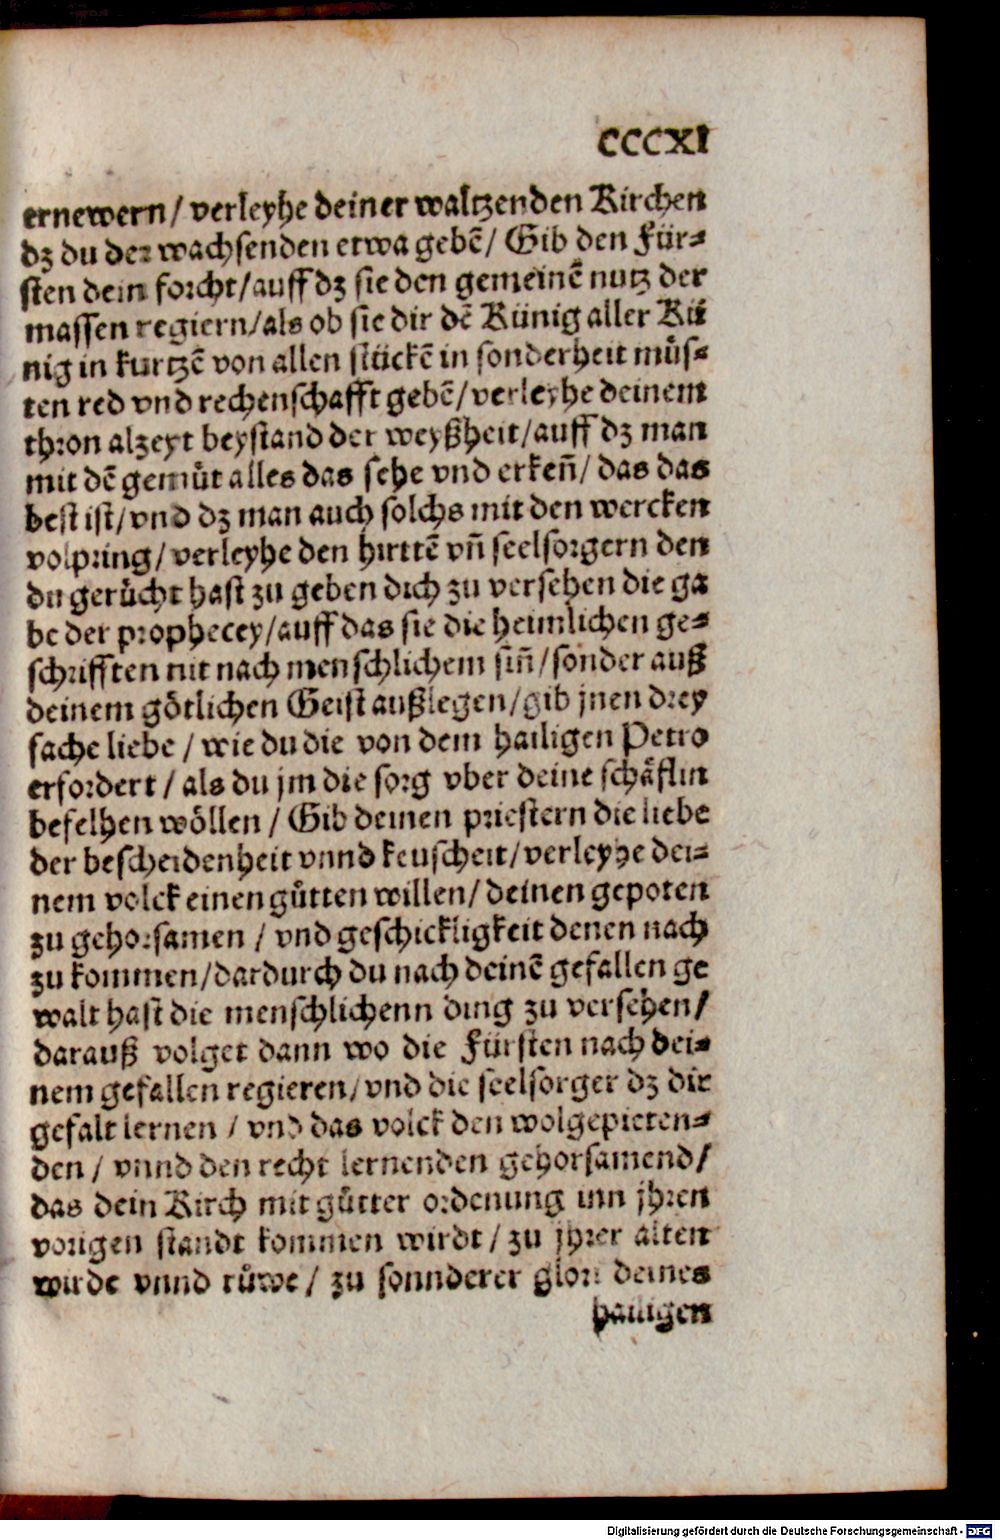 CCCXI
ernewern / verleyhe deiner waltzenden Kirchen
dz du der wachsenden etwa gebẽ / Gib den Für⸗
sten dein forcht / auff dz sie den gemeinẽ nutz der
massen regiern / als ob sie dir dẽ Künig aller Kü
nig in kurtzẽ von allen stückẽ in sonderheit můs⸗
ten red vnd rechenschafft gebẽ / verleyhe deinem
thron alzeyt beystand der weyßheit / auff dz man
mit dẽ gemůt alles das sehe vnd erkeñ / das das
best ist / vnd dz man auch solchs mit den wercken
volpring / verleyhe den hirttẽ vñ seelsorgern den
du gerůcht hast zu geben dich zu versehen die ga
be der prophecey / auff das sie die heimlichen ge⸗
schrifften nit nach menschlichem siñ / sonder auß
deinem götlichen Geist außlegen / gib jnen drey
sache liebe / wie du die von dem hailigen Petro
erfordert / als du jm die sorg vber deine schäflin
befelhen wöllen / Gib deinen priestern die liebe
der bescheidenheit vnnd keuscheit / verleyhe dei⸗
nem volck einen gůtten willen / deinen gepoten
zu gehorsamen / vnd geschickligkeit denen nach
zu kommen / dardurch du nach deinẽ gefallen ge
walt hast die menschlichenn ding zu versehen /
darauß volget dann wo die Fürsten nach dei⸗
nem gefallen regieren / vnd die seelsorger dz dir
gefalt lernen / vnd das volck den wolgepieten⸗
den / vnnd den recht lernenden gehorsamend /
das dein Kirch mit gůtter ordenung inn jhren
vorigen standt kommen wirdt / zu jhrer alten
wirde vnnd růwe / zu sonnderer glori deines
hailigen
Digitalisierung gefördert durch die Deutsche Forschungsgemeinschaft - DFG